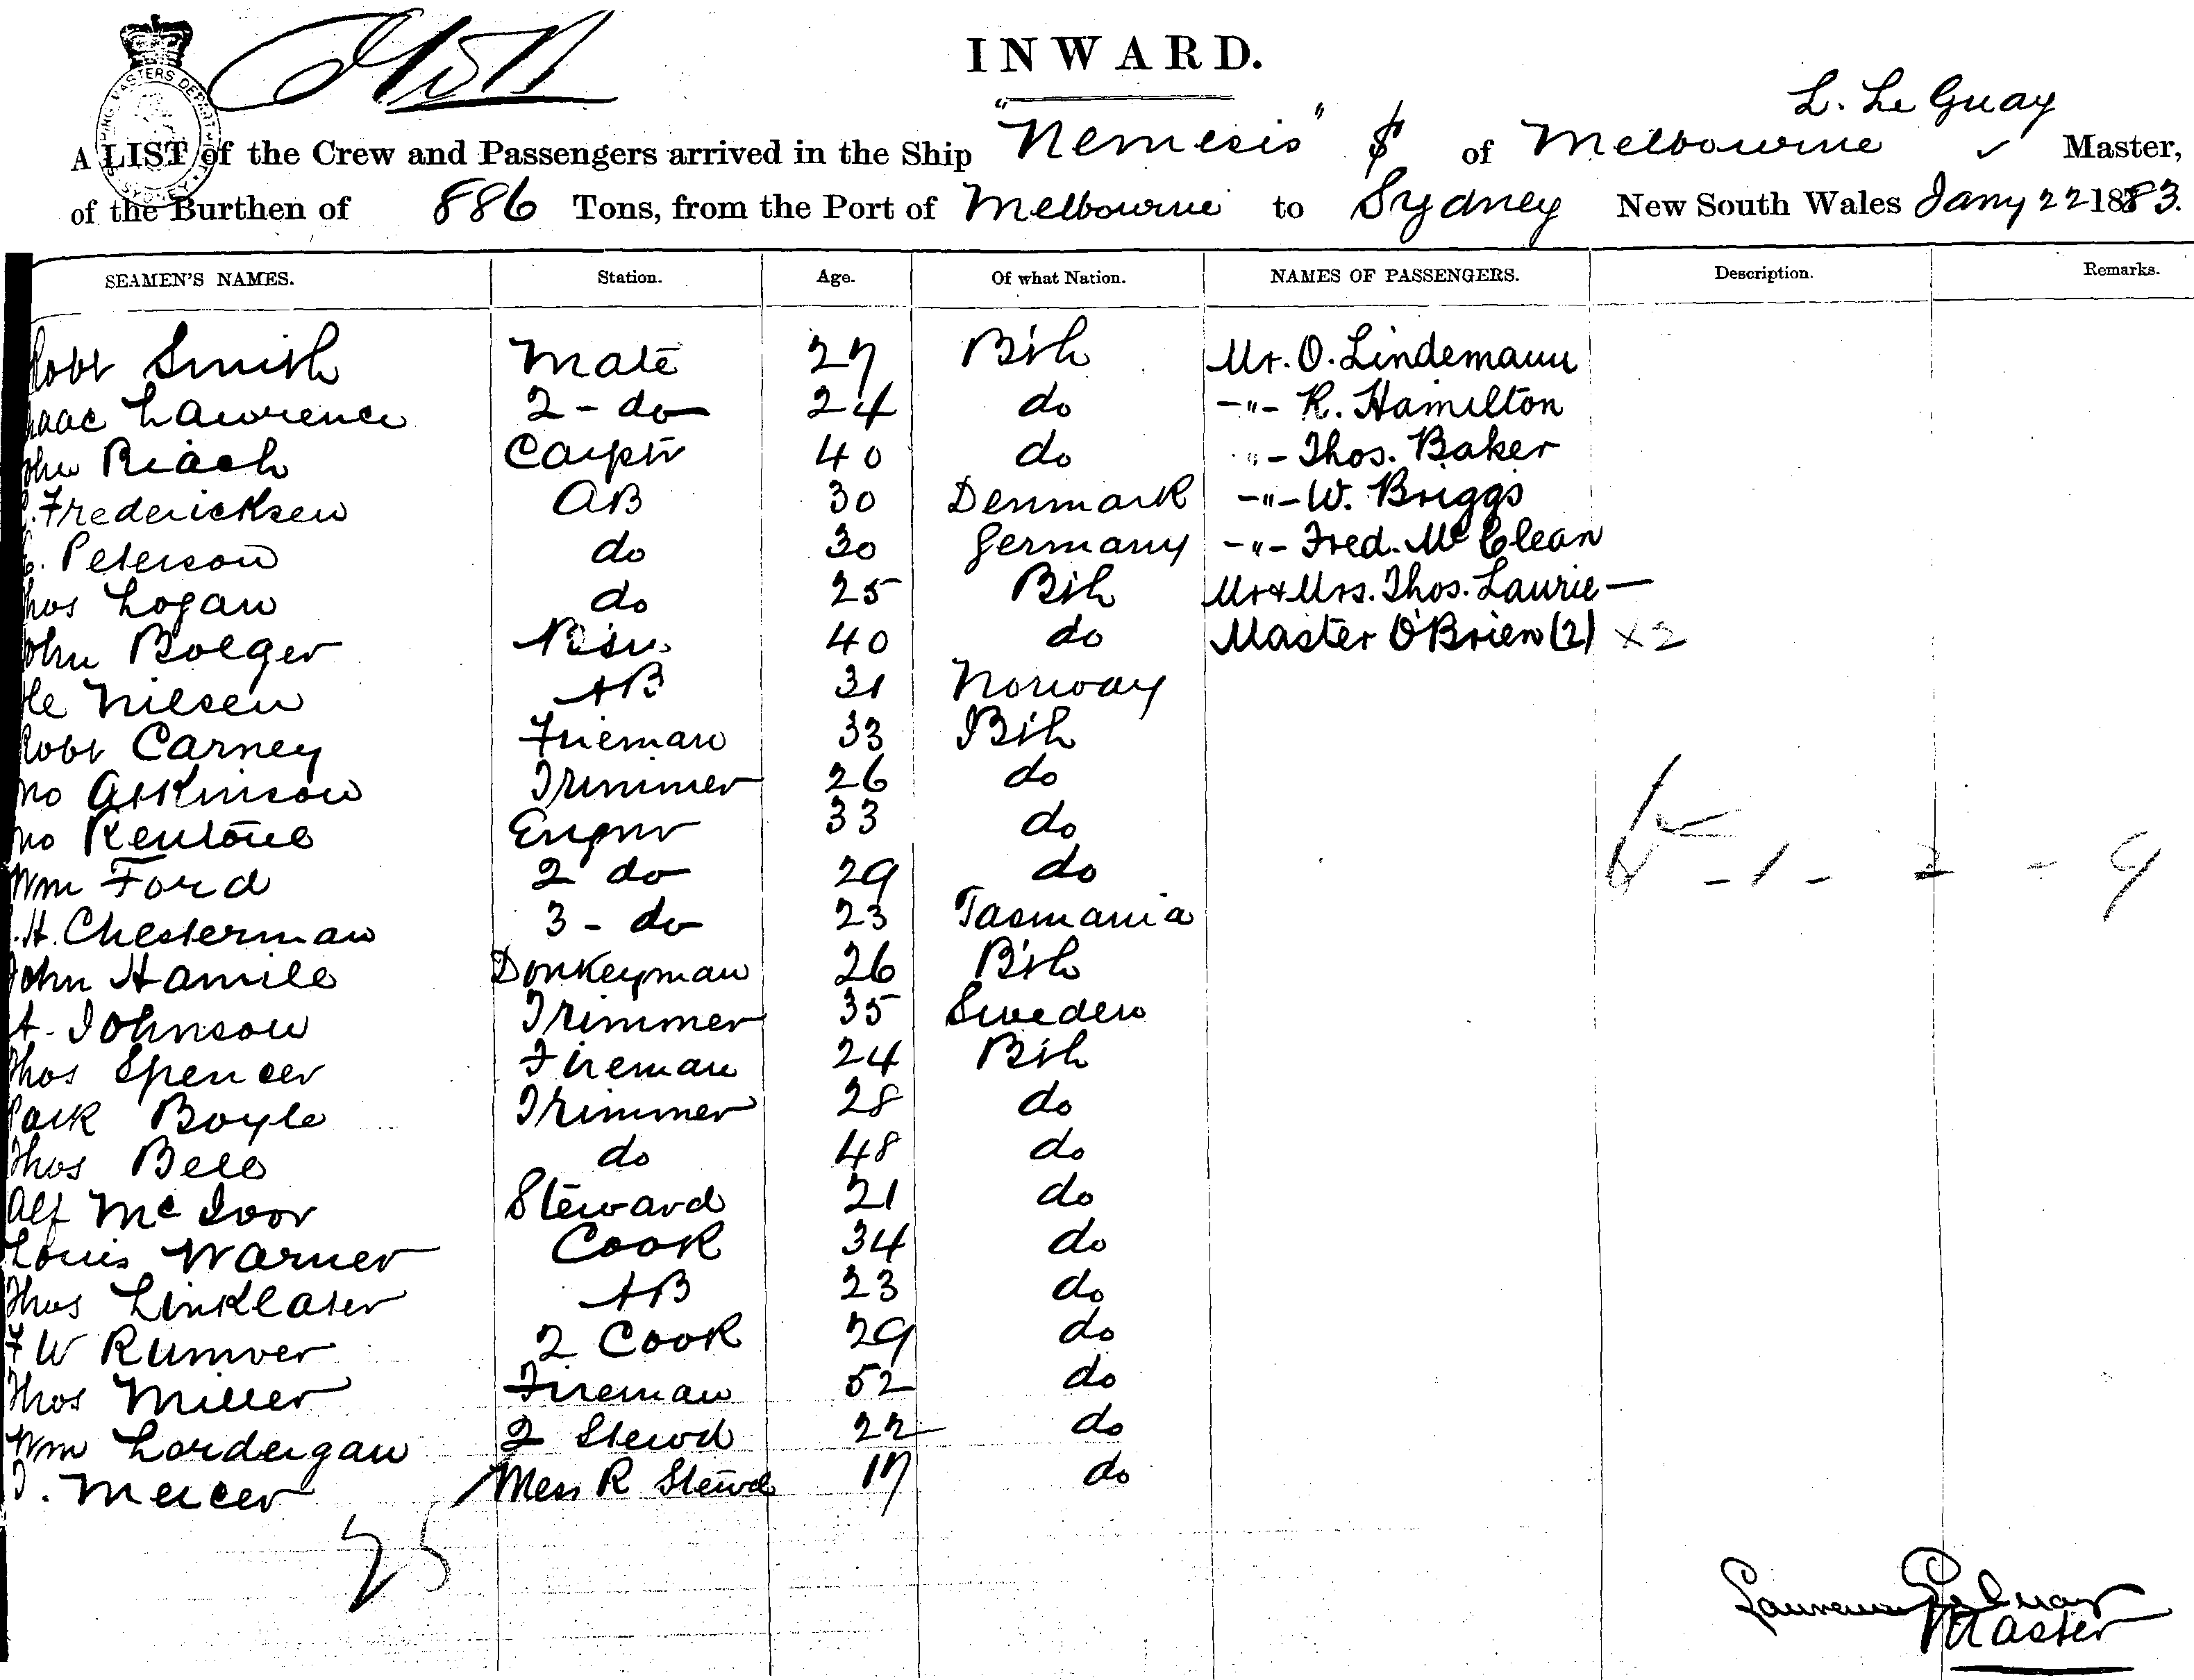 INWARD.
L. Le Guay
A LIST of the Crew and Passengers arrived in the Ship "Nemesis" $ of Melbourne Master,
of the Burthen of 886 Tons, from the Port of Melbourne to Sydney New South Wales Jany 22 1883.
SEAMEN'S NAMES. Station. Age. Of what Nation. NAMES OF PASSENGERS. Description. Remarks.
Robt Smith Mate 27 Bish Mr. O. Lindemann
Isaac Lawrence 2 - do 24 do -"- R. Hamilton
John Riach Carptr 40 do "- Thos. Baker
Fredericksen AB 30 Denmark -"- W. Briggs
Peterson do 30 Germany -"- Fred. McClean
Thos Logan do 25 Bish Mr & Mrs. Thos. Laurie —
John Bolger 40 do Master O'Brien (2) x2
Ole Nilsen AB 31 Norway
Robt Carney Fireman 33 Bish
Jno Atkinson Trimmer 26 do
Jno Engnr 33 do
Wm Ford 2 do 29 do
H. Chesterman 3 - do 23 Tasmania
John Hamill Donkeyman 26 Bish
A. Johnson Trimmer 35 Sweden
Thos Spencer Fireman 24 Bish
Park Boyle Trimmer 28 do
Thos Bell do 48 do
Alf McIvor Steward 21 do
Louis Warner Cook 34 do
Thos Linklater AB 23 do
F W Rumver 2 Cook 29 do
Thos Miller Fireman 52 do
Wm Lordergan 2 Stewd 22 do
Mercer Mess R Stewd 17 do
25
- 1 - 2 - 9
Master